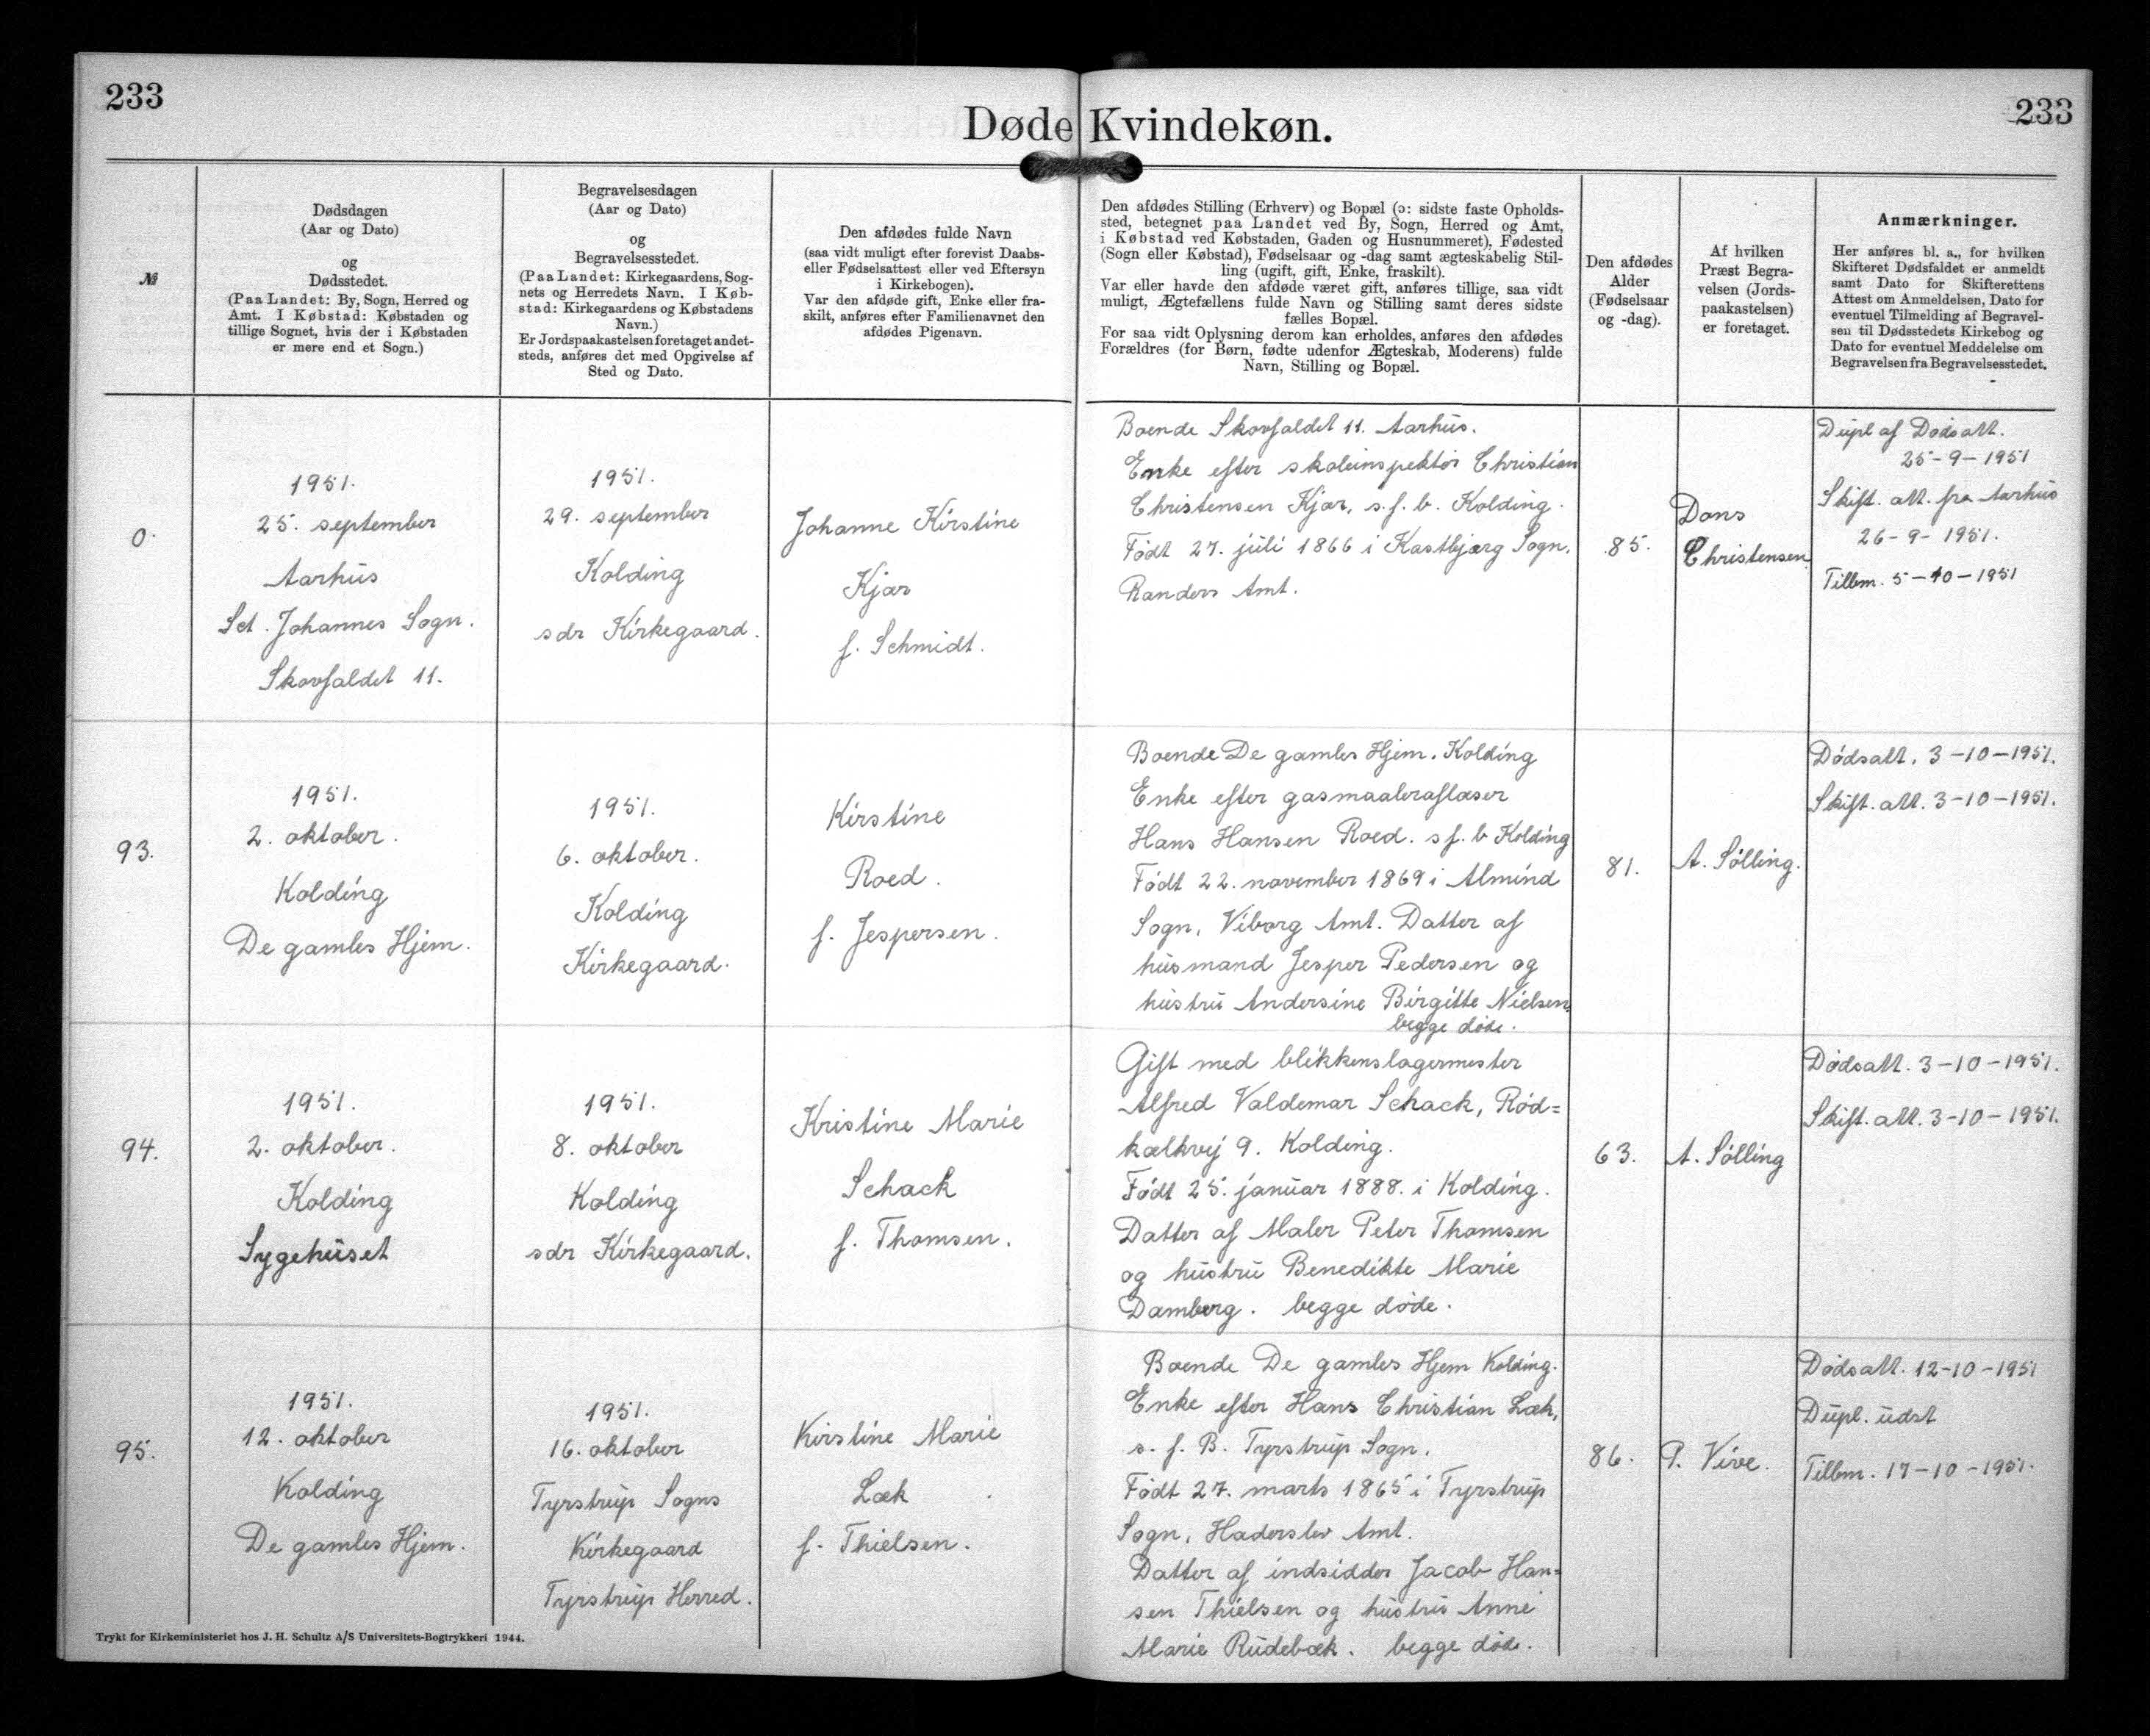 233
233
Døde Kvindekøn.
№
Dødsdagen
(Aar og Dato)
og
Dødsstedet.
(Paa Landet: By, Sogn, Herred og
Amt. I Købstad: Købstaden og
tillige Sognet, hvis der i Købstaden
er mere end et Sogn.)
Begravelsesdagen
(Aar og Dato)
og
Begravelsesstedet.
(Paa Landet: Kirkegaardens, Sog-
nets og Herredets Navn. I Køb-
stad: Kirkegaardens og Købstadens
Navn.)
Er Jordspaakastelsen foretaget andet-
steds, anføres det med Opgivelse af
Sted og Dato.
Den afdødes fulde Navn
(saa vidt muligt efter forevist Daabs-
eller Fødselsattest eller ved Eftersyn
i Kirkebogen).
Var den afdøde gift, Enke eller fra-
skilt, anføres efter Familienavnet den
afdødes Pigenavn.
Den afdødes Stilling (Erhverv) og Bopæl (ɔ: sidste faste Opholds-
sted, betegnet paa Landet ved By, Sogn, Herred og Amt,
i Købstad ved Købstaden, Gaden og Husnummeret), Fødested
(Sogn eller Købstad), Fødselsaar og -dag samt ægteskabelig Stil-
ling (ugift, gift, Enke, fraskilt).
Var eller havde den afdøde været gift, anføres tillige, saa vidt
muligt, Ægtefællens fulde Navn og Stilling samt deres sidste
fælles Bopæl.
For saa vidt Oplysning derom kan erholdes, anføres den afdødes
Forældres (for Børn, fødte udenfor Ægteskab, Moderens) fulde
Navn, Stilling og Bopæl.
Den afdødes
Alder
(Fødselsaar
og -dag).
Af hvilken
Præst Begra-
velsen (Jords-
paakastelsen)
er foretaget.
Anmærkninger.
Her anføres bl. a., for hvilken
Skifteret Dødsfaldet er anmeldt
samt Dato for Skifterettens
Attest om Anmeldelsen, Dato for
eventuel Tilmelding af Begravel-
sen til Dødsstedets Kirkebog og
Dato for eventuel Meddelelse om
Begravelsen fra Begravelsesstedet.
0.
1951.
25. september
Aarhus
Sct. Johannes Sogn.
Skovfaldet 11.
1951.
29. september
Kolding
sdr Kirkegaard.
Johanne Kirstine
Kjær
f. Schmidt.
Boende Skovfaldet 11. Aarhus.
Enke efter skoleinspektør Christian
Christensen Kjær, s.f.b. Kolding.
Født 27. juli 1866 i Kastbjærg Sogn,
Randers Amt.
85.
Dons
Christensen
Dupl af Dødsatt.
25-9-1951
Skift. att. fra Aarhus
26-9-1951.
Tillm. 5-10-1951
93.
1951.
2. oktober.
Kolding
De gamles Hjem.
1951.
6. oktober.
Kolding
Kirkegaard.
Kirstine
Roed.
f. Jespersen.
Boende De gamles Hjem. Kolding
Enke efter gasmaaleraflæser
Hans Hansen Roed. s f. b Kolding
Født 22. november 1869 i Almind
Sogn, Viborg Amt. Datter af
husmand Jesper Pedersen og
hustru Andersine Birgitte Nielsen,
begge døde.
81.
A. Sölling.
Dødsatt. 3-10-1951.
Skift. att. 3-10-1951.
94.
1951.
2. oktober.
Kolding
Sygehuset
1951.
8. oktober
Kolding
sdr Kirkegaard.
Kristine Marie
Schack
f. Thomsen.
Gift med blikkenslagermester
Alfred Valdemar Schack, Rød=
kælkvej 9. Kolding.
Født 25. januar 1888. i Kolding.
Datter af Maler Peter Thomsen
og hustru Benedikte Marie
Damberg. begge døde.
63.
A. Sölling
Dødsatt. 3-10-1951.
Skift. att. 3-10-1951.
95.
1951.
12. oktober
Kolding
De gamles Hjem.
1951.
16. oktober
Tyrstrup Sogns
Kirkegaard
Tyrstrup Herred.
Kirstine Marie
Læk
f. Thielsen.
Boende De gamles Hjem Kolding.
Enke efter Hans Christian Læk,
s. f. B. Tyrstrup Sogn.
Født 27. marts 1865 i Tyrstrup
Sogn, Haderslev Amt.
Datter af indsidder Jacob Han=
sen Thielsen og hustru Anne
Marie Rudebæk. begge døde.
86.
P. Vive.
Dødsatt. 12-10-1951
Dupl. udst
Tillm. 17-10-1951.
Trykt for Kirkeministeriet hos J. H. Schultz A/S Universitets-Bogtrykkeri 1944.